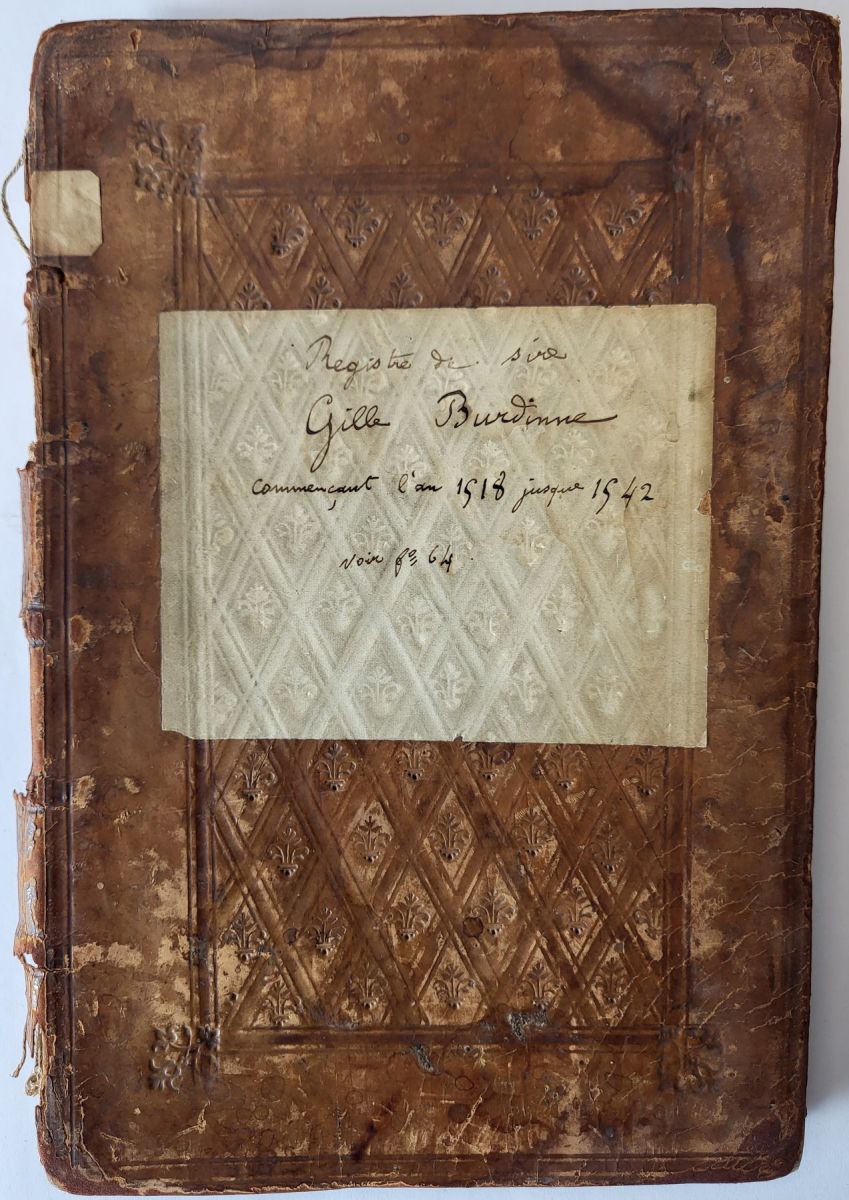 Registre de sire
Gille Burdinne
commençant l'an 1518 jusque 1542
voir fo 64.